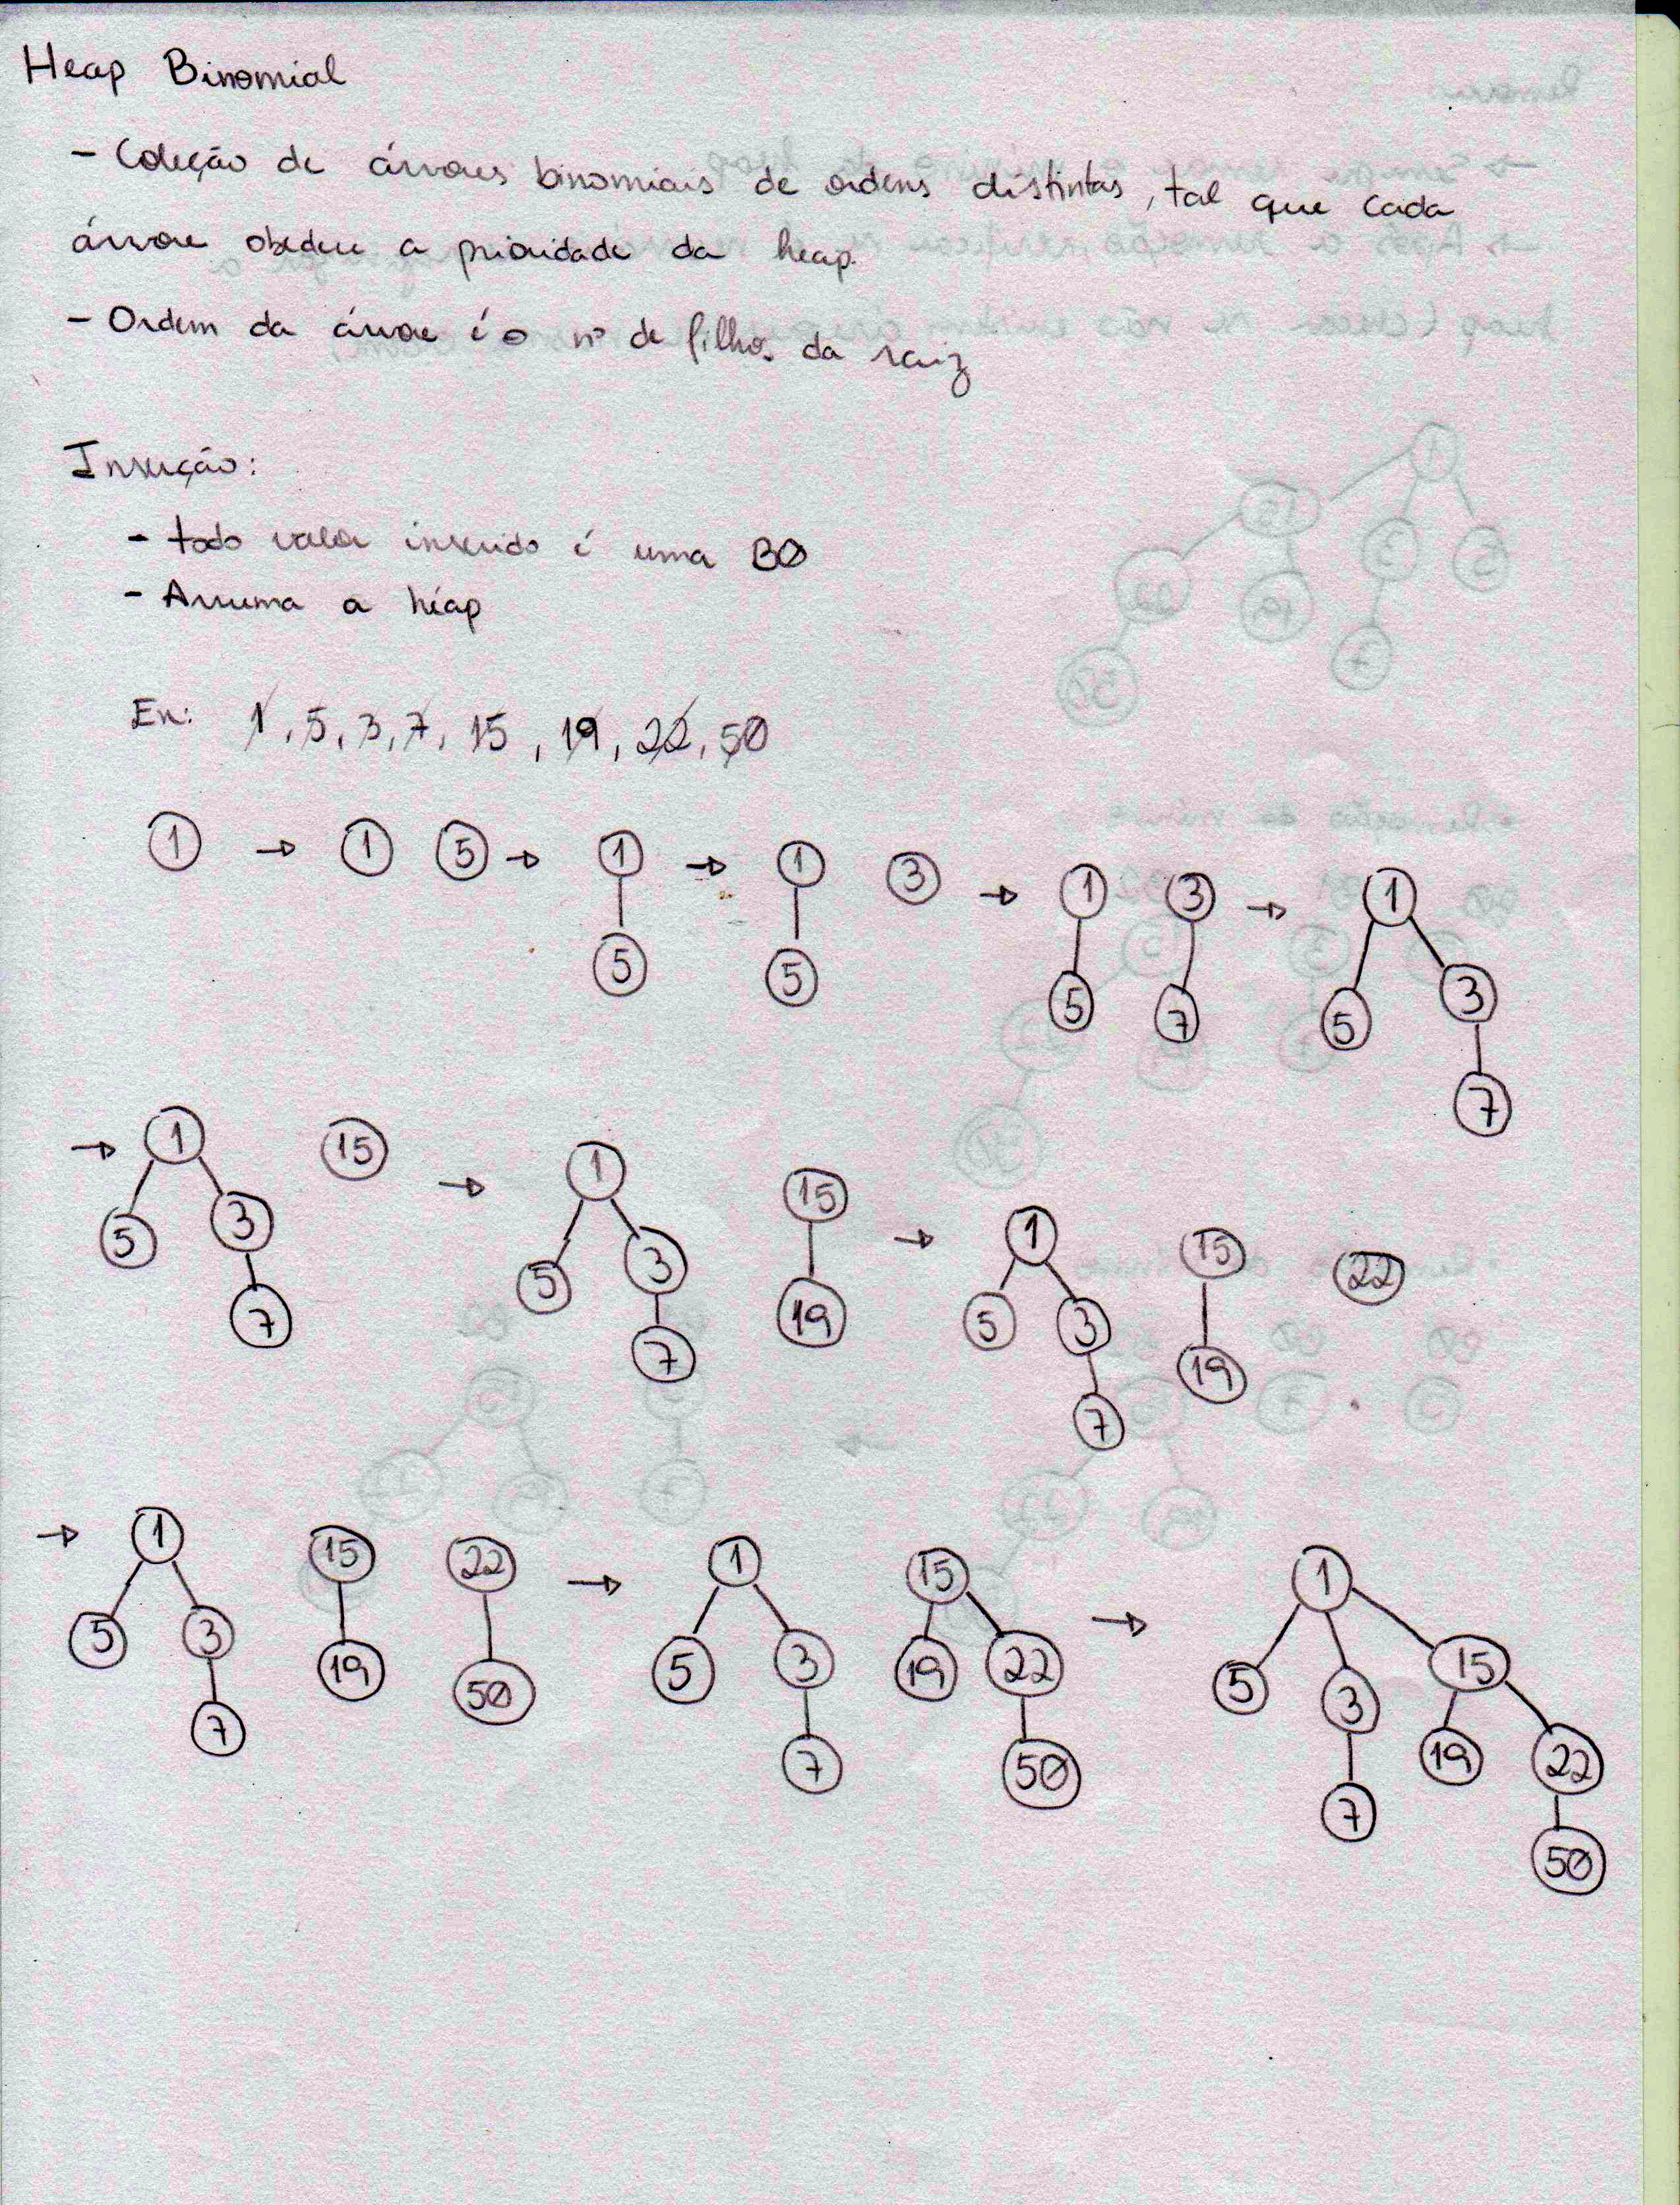 Heap Binomial
- Coleção de árvores binomiais de ordens distintas, tal que cada
árvore obedece a prioridade da heap.
- Ordem da árvore é o nº de filhos da raiz
Inserção:
- todo valor inserido é uma BØ
- Arruma a heap
Ex: 1, 5, 3, 7, 15, 19, 22, 5Ø
1 → 1 5 → 1 → 1 3 → 1 3 → 1
5 5 5 7 5 3
7
→ 1 15 → 1 15 → 1 15 22
5 3 5 3 19 5 3 19
7 7 7
→ 1 15 22 → 1 15 → 1
5 3 19 5Ø 5 3 19 22 5 3 15
7 7 5Ø 7 19 22
5Ø